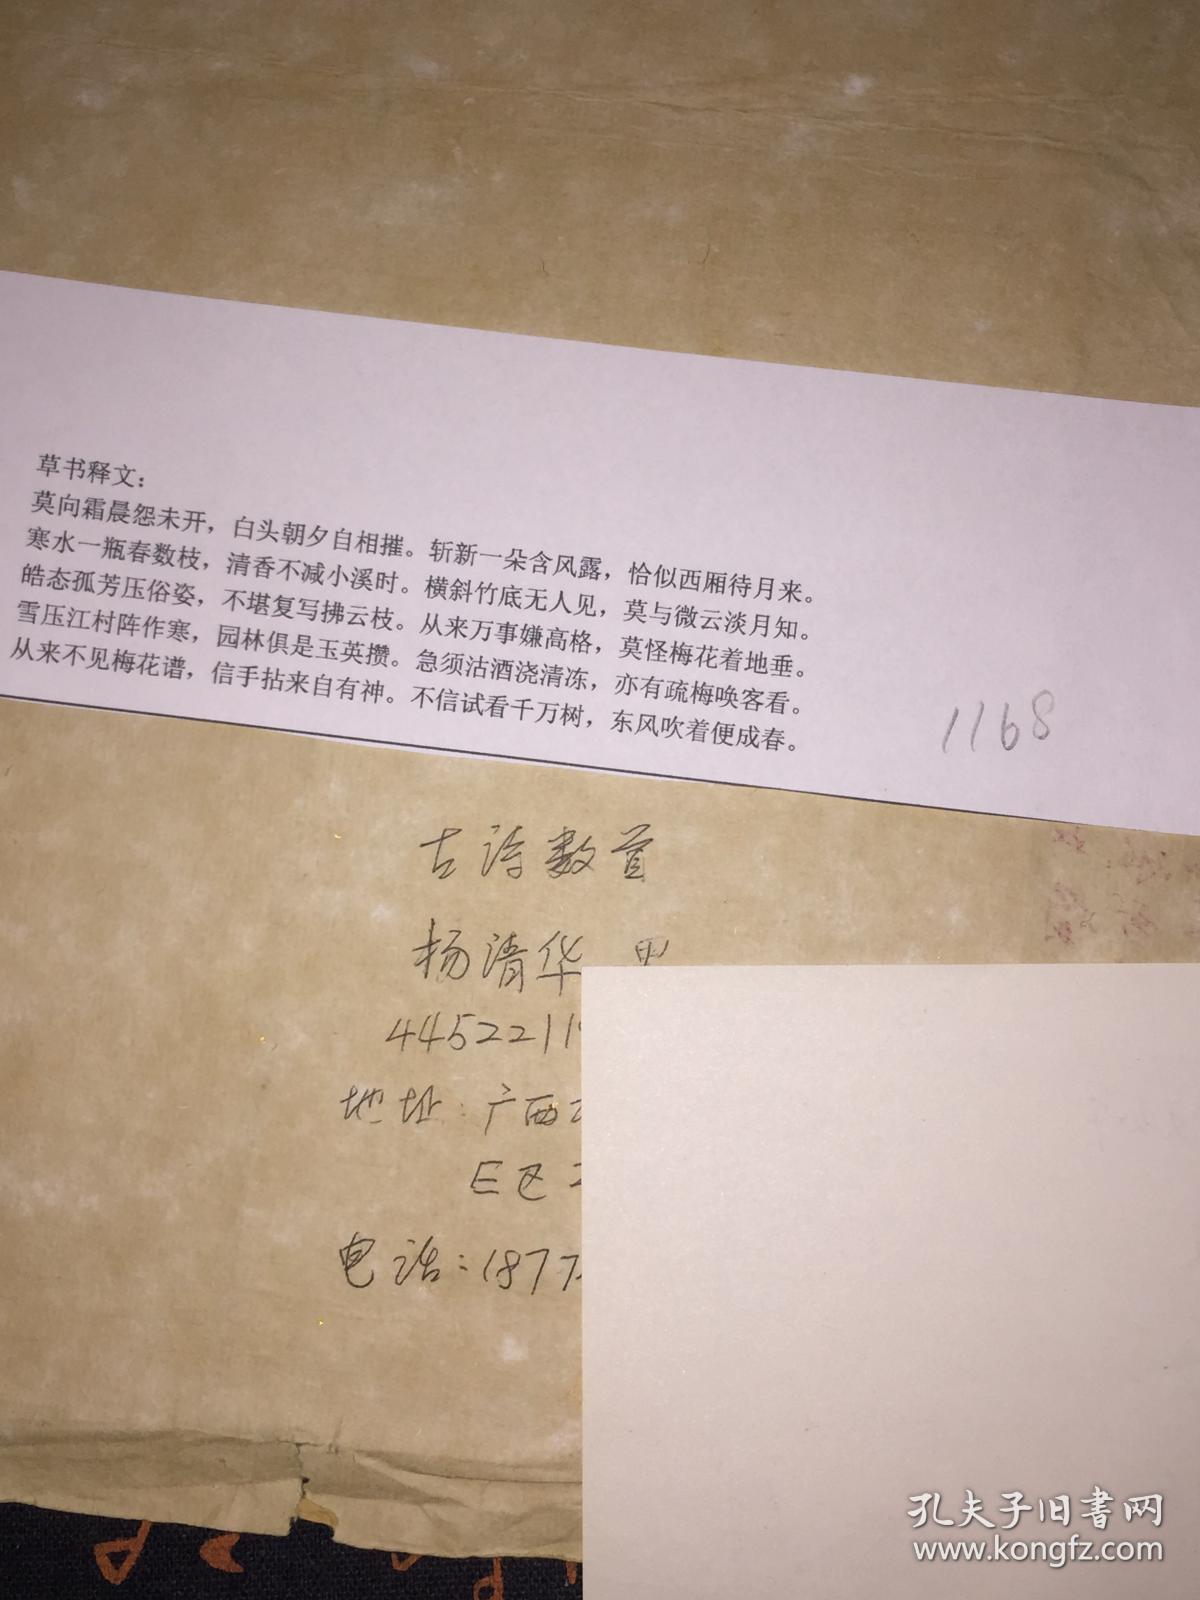 草书释文：
莫向霜晨怨未开，白头朝夕自相摧。斩新一朵含风露，恰似西厢待月来。
寒水一瓶春数枝，清香不减小溪时。横斜竹底无人见，莫与微云淡月知。
皓态孤芳压俗姿，不堪复写拂云枝。从来万事嫌高格，莫怪梅花着地垂。
雪压江村阵作寒，园林俱是玉英攒。急须沽酒浇清冻，亦有疏梅唤客看。
从来不见梅花谱，信手拈来自有神。不信试看千万树，东风吹着便成春。
1168
古诗数首
杨清华 男
4452211
地址：广西
E区
电话：1877
孔夫子旧书网
www.kongfz.com